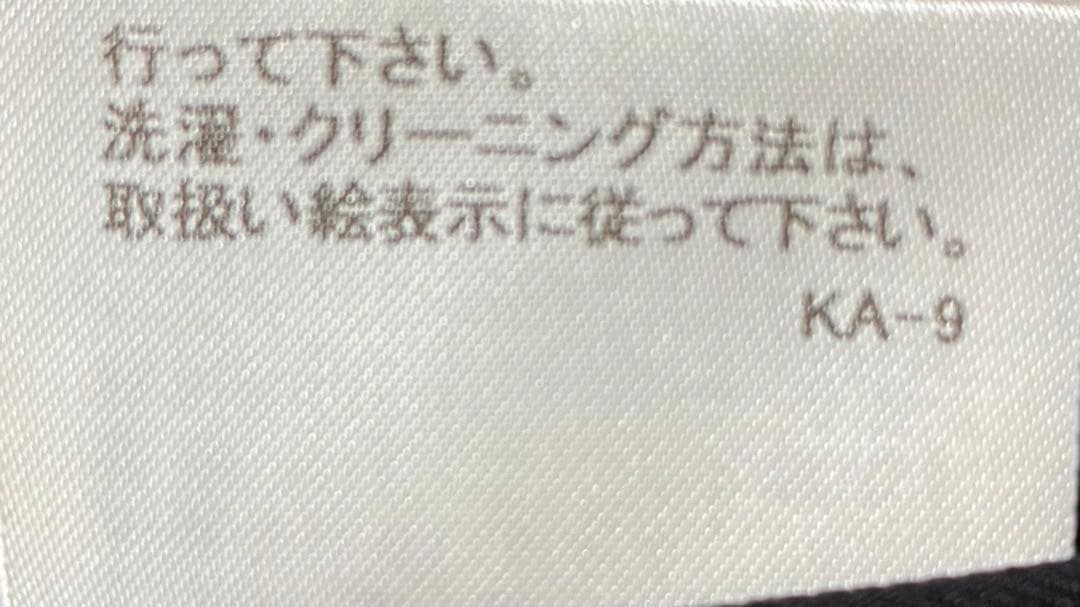 行って下さい。
洗濯・クリーニング方法は、
取扱い絵表示に従って下さい。
KA-9